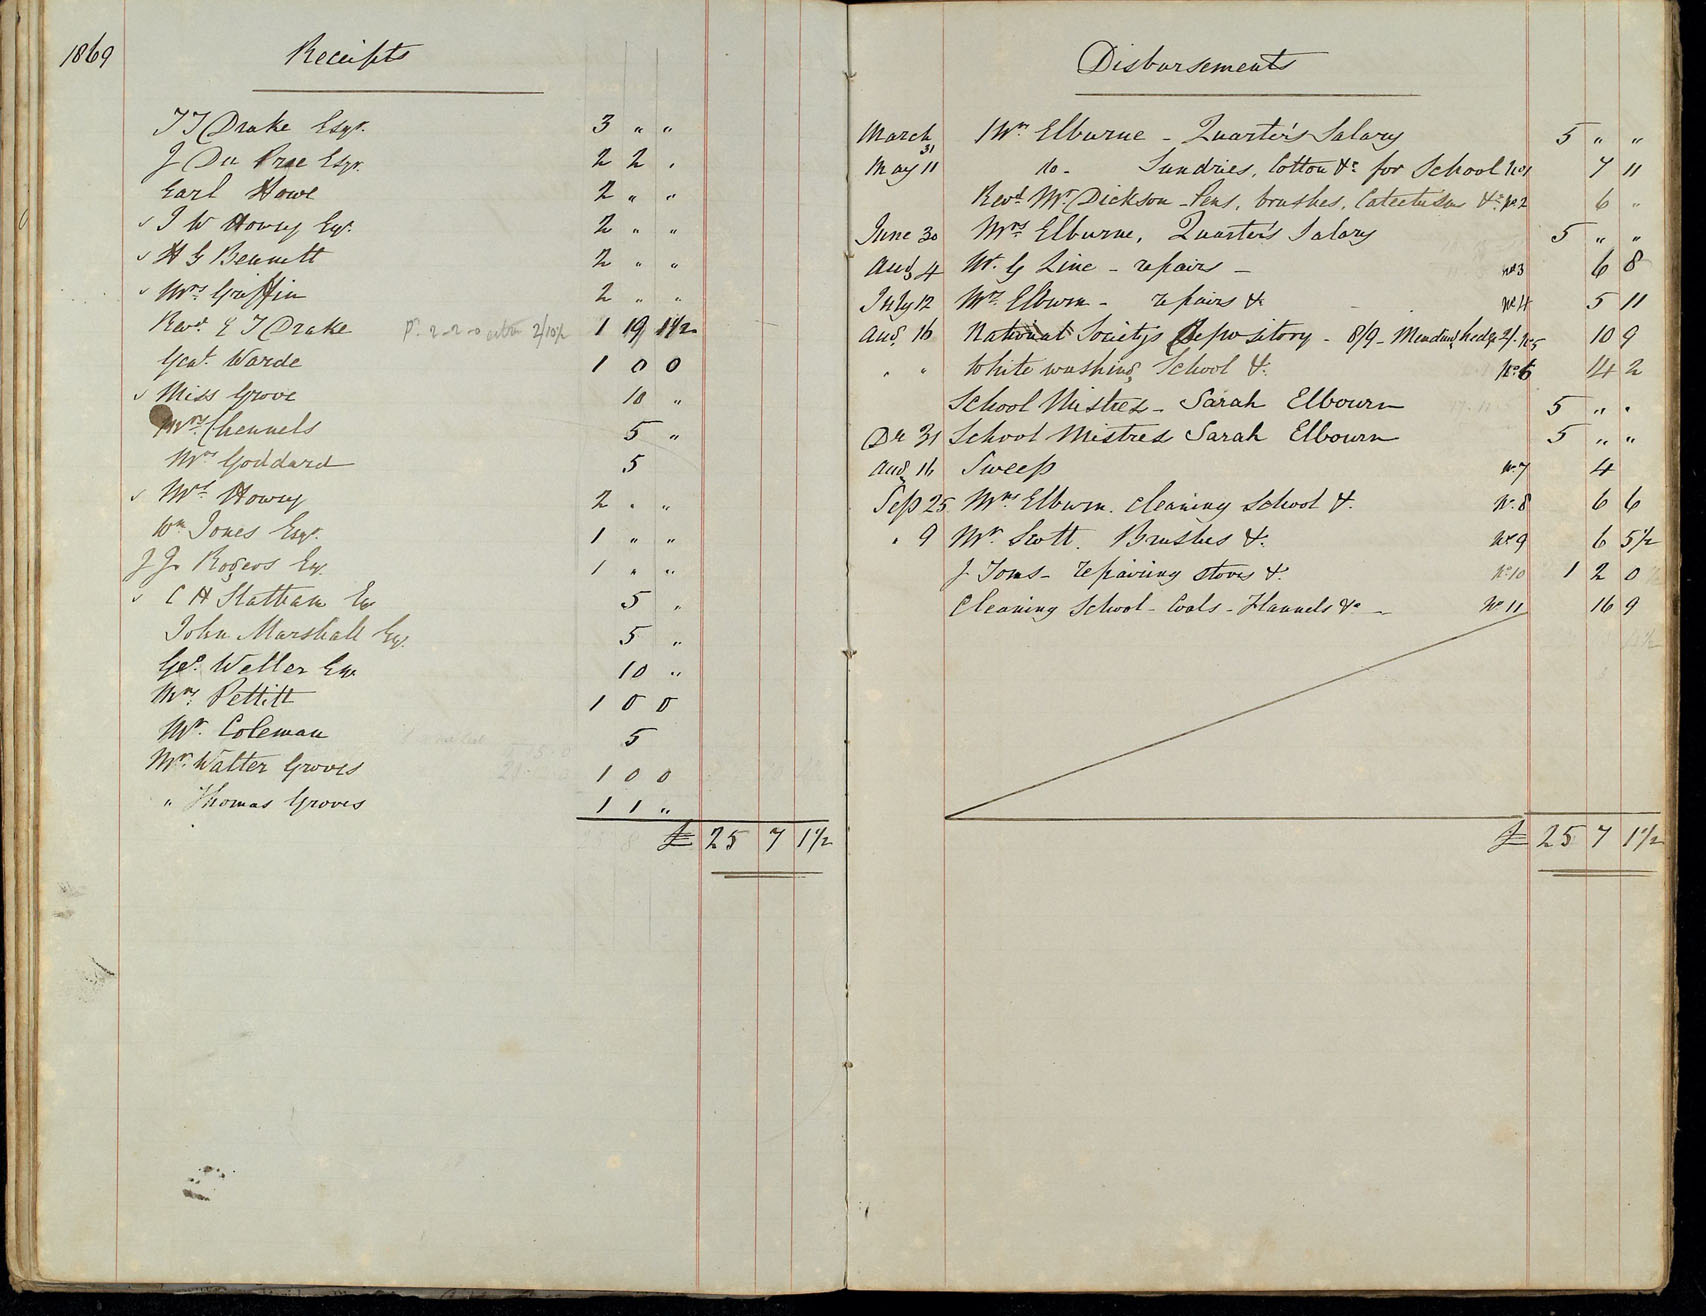 1869
Receipts
T T Drake Esqr. 3 " "
J Du Prae Esqr. 2 2 "
Earl Howe 2 " "
J W Howry Esqr. 2 " "
H G Bennett 2 " "
Mrs Griffin 2 " "
Revd. E T Drake 1 19 1 1/2
Genl. Warde 1 0 0
Miss Grove 10 "
Mrs Chennels 5 "
Mrs Goddard 5
Mrs Howry 2 " "
Wm Jones Esqr. 1 " "
J J Rogers Esq. 1 " "
C H Statham Esq 5 "
John Marshall Esq. 5 "
Geo. Weller Esqr 10 "
Mrs. Pettitt 1 0 0
Mr. Coleman 5
Mr. Walter Groves 1 0 0
" Thomas Groves 1 1 "
£ 25 7 1 1/2
Disbursements
March 31 Mrs Elburne - Quarter's Salary 5 " "
May 11 do - Sundries, Cotton &c for School No 1 7 11
Revd. Mr. Dickson - Pens, brushes, Catechisms &c. No 2 6 "
June 30 Mrs Elburne, Quarter's Salary 5 " "
Aug 4 Mr. G Line - repairs - No 3 6 8
July 12 Mrs. Elburn - repairs &c No 4 5 11
Aug 16 National Society's Depository - 8/9 - Mending hedge 2/- No 5 10 9
" " White washing School &c. No. 6 14 2
School Mistress - Sarah Elbourn 5 " "
De 31 School Mistress Sarah Elbourn 5 " "
Aug 16 Sweep No. 7 4
Sep 25 Mrs Elburn. Cleaning School &c. No. 8 6 6
" 9 Mr. Scott. Brushes &c. No 9 6 5 1/2
J Toms - repairing stoves &c. No 10 1 2 0
Cleaning School - Coals - Flannels &c - No 11 16 9
£ 25 7 1 1/2